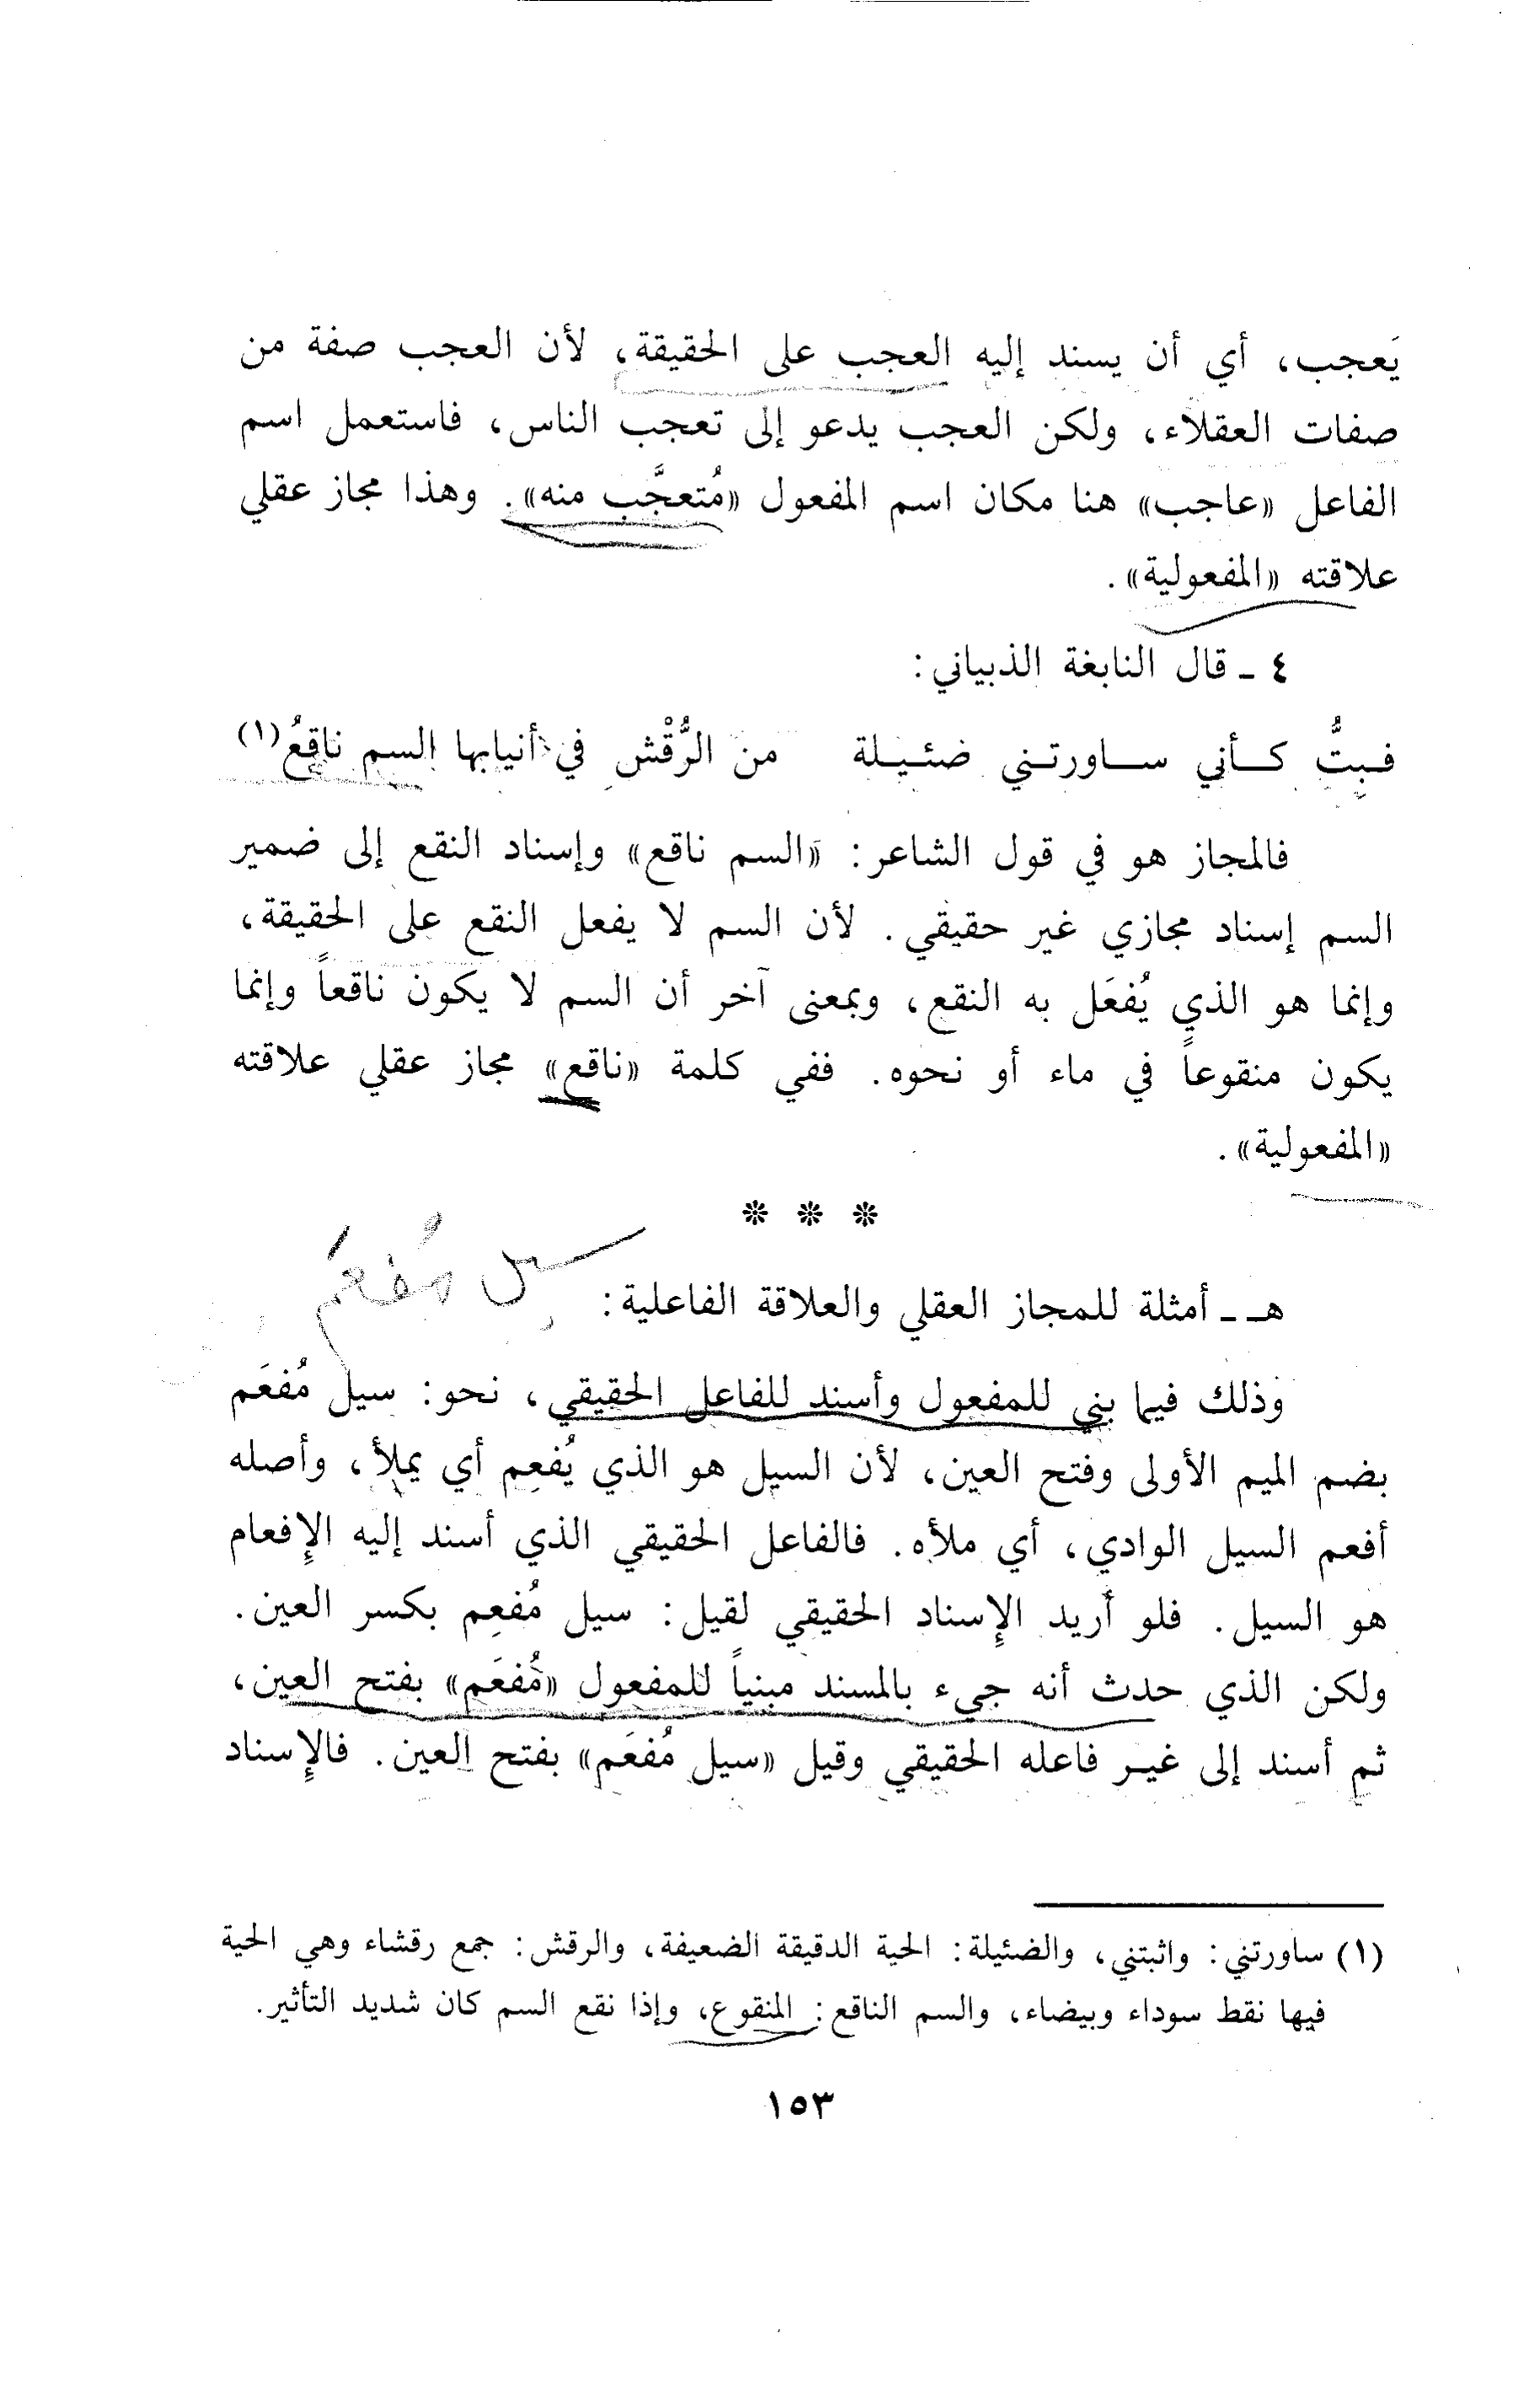 يَعجب، أي أن يسند إليه العجب على الحقيقة، لأن العجب صفة من
صفات العقلاء، ولكن العجب يدعو إلى تعجب الناس، فاستعمل اسم
الفاعل «عاجب» هنا مكان اسم المفعول «مُتعجَّب منه». وهذا مجاز عقلي
علاقته «المفعولية».
٤ ـ قال النابغة الذبياني:
فـبِتُّ كـأني سـاورتـني ضئـيـلة من الرُّقْش في أنيابها السم ناقِعُ(١)
فالمجاز هو في قول الشاعر: «السم ناقع» وإسناد النقع إلى ضمير
السم إسناد مجازي غير حقيقي. لأن السم لا يفعل النقع على الحقيقة،
وإنما هو الذي يُفعَل به النقع، وبمعنى آخر أن السم لا يكون ناقعاً وإنما
يكون منقوعاً في ماء أو نحوه. ففي كلمة «ناقع» مجاز عقلي علاقته
«المفعولية».
* * *
سيل مُفعَم
هـ ـ أمثلة للمجاز العقلي والعلاقة الفاعلية:
وذلك فيما بني للمفعول وأسند للفاعل الحقيقي، نحو: سيل مُفعَم
بضم الميم الأولى وفتح العين، لأن السيل هو الذي يُفعِم أي يملأ، وأصله
أفعم السيل الوادي، أي ملأه. فالفاعل الحقيقي الذي أسند إليه الإفعام
هو السيل. فلو أريد الإسناد الحقيقي لقيل: سيل مُفعِم بكسر العين.
ولكن الذي حدث أنه جيء بالمسند مبنياً للمفعول «مُفعَم» بفتح العين،
ثم أسند إلى غيـر فاعله الحقيقي وقيل «سيل مُفعَم» بفتح العين. فالإسناد
(١) ساورتني: واثبتني، والضئيلة: الحية الدقيقة الضعيفة، والرقش: جمع رقشاء وهي الحية
فيها نقط سوداء وبيضاء، والسم الناقع: المنقوع، وإذا نقع السم كان شديد التأثير.
١٥٣